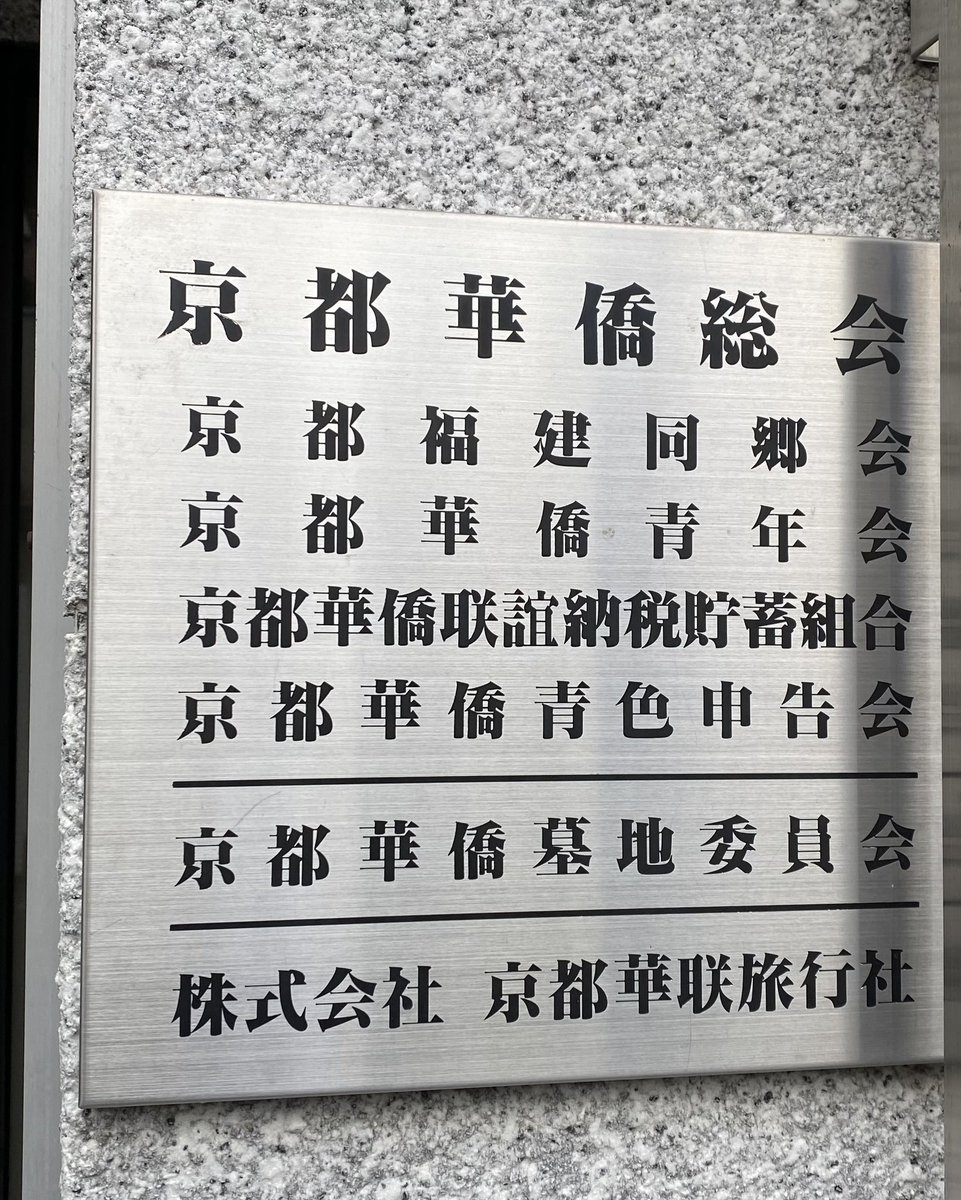 京都華僑総会
京都福建同郷会
京都華僑青年会
京都華僑联誼納税貯蓄組合
京都華僑青色申告会
京都華僑墓地委員会
株式会社 京都華联旅行社